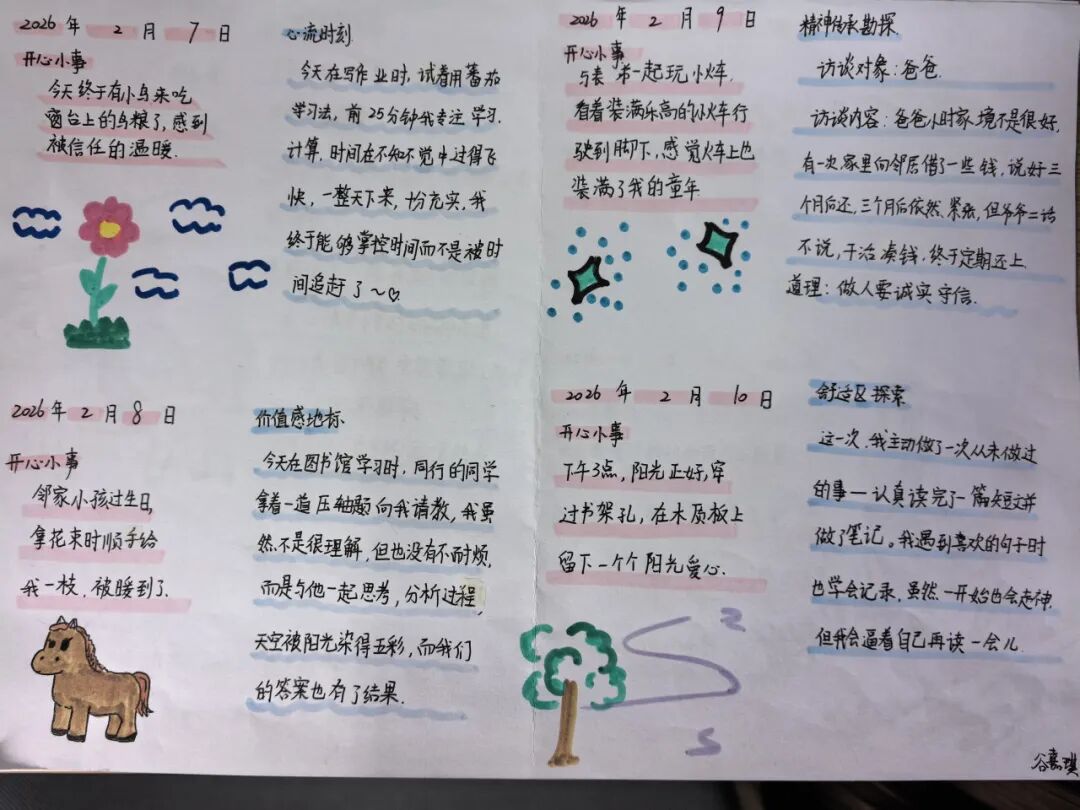 2026 年 2 月 7 日
开心小事
今天终于有小鸟来吃
窗台上的鸟粮了,感到
被信任的温暖.
心流时刻
今天在写作业时,试着用番茄
学习法,前25分钟我专注学习.
计算,时间在不知不觉中过得飞
快,一整天下来,十分充实,我
终于能够掌控时间而不是被时
间追赶了~♡
2026 年 2 月 8 日
开心小事
邻家小孩过生日,
拿花束时顺手给
我一枝,被暖到了.
价值感地标
今天在图书馆学习时,同行的同学
拿着一道压轴题向我请教,我虽
然不是很理解,但也没有不耐烦,
而是与他一起思考,分析过程,
天空被阳光染得五彩,而我们
的答案也有了结果.
2026 年 2 月 9 日
开心小事
与表弟一起玩小火车.
看着装满乐高的小火车行
驶到脚下,感觉火车上也
装满了我的童年
精神传承勘探
访谈对象:爸爸.
访谈内容:爸爸小时家境不是很好,
有一次家里向邻居借了一些钱,说好三
个月后还,三个月后依然紧张,但爷爷二话
不说,干活凑钱,终于定期还上.
道理:做人要诚实守信.
2026 年 2 月 10 日
开心小事
下午3点,阳光正好,穿
过书架孔,在木质板上
留下一个个阳光爱心.
舒适区探索
这一次,我主动做了一次从未做过
的事——认真读完了一篇短文并
做了笔记。我遇到喜欢的句子时
也学会记录,虽然一开始也会走神,
但我会逼着自己再读一会儿.
2
S